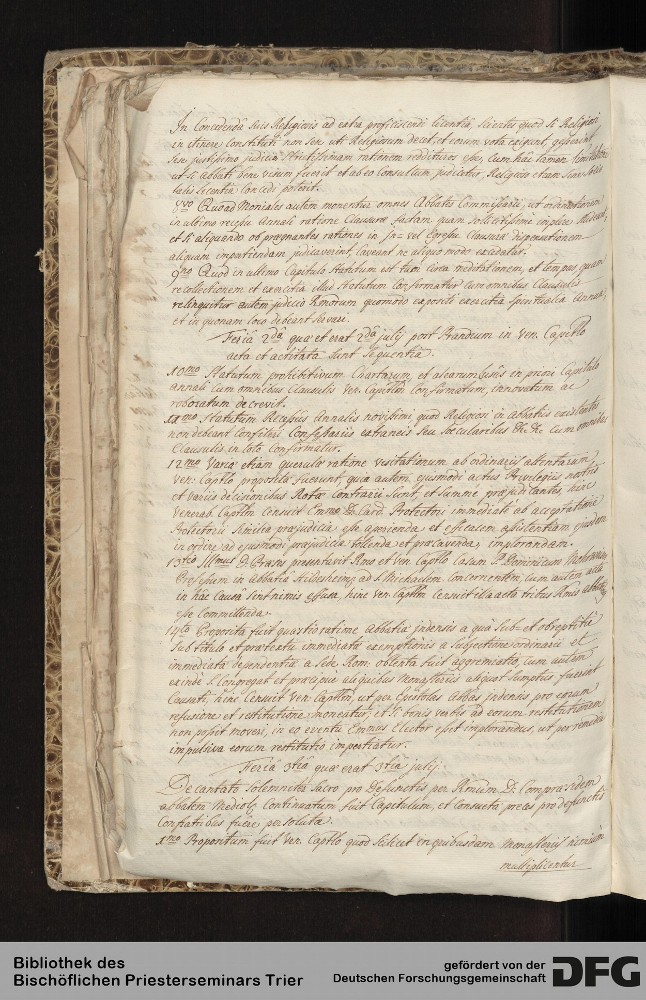 In Concedenda suis Religiosis ad extra proficiscendi licentia, scientes quod si Religiosi
in itinere constituti non sen uti Religiosum decet, et eorum vota exigunt,
sum justissimo judicio strictissimam rationem reddituros esse, cum hac tamen
ut si Abbati bene visum fuerit et ab eo consultum judicatur, Religioso etiam sine
talis licentia concedi poterit.
8vo Quoad Moniales autem monentur omnes Abbates Commissarii, ut ordinationem
in ultimo recessu Annali ratione Clausurae factam quam solicitissime implere studeant,
et si aliquando ob praegnantes rationes in In- vel Egressu Clausurae dispensationem
aliquam impatiendam judicaverint, caveant ne aliquo modo excedatur.
9no Quod in ultimo Capitulo statutum est tum circa meditationem, et tempus, quam
recollectionem et exercitia illud statutum confirmatur cum omnibus Clausulis
relinquitur autem judicio Rmorum quomodo expositi exercitia spiritualia Annali,
et in quonam loco debeant
Feria 2da quae et erat 2da julij post Prandium in Ven. Capitlo
acta et actitata sunt sequentia.
10mo Statutum prohibitivum Chartarum, et alearum lusus in priori Capitulo
annali cum omnibus Clausulis Ven. Capitlm confirmatum, innovatum ac
roboratum decrevit.
11mo Statutum Recessus Annalis novissimi quod Religiosi in Abbatiis existentes
non debeant confiteri Confessariis extraneis seu saecularibus &c. &c. cum omnibus
Clausulis in toto confirmatur.
12mo Variae etiam querulae ratione visitationum ab ordinariis attentarum
Ven: Captlo proposita fuerunt, quia autem ejusmodi actus Privilegiis nostris
et variis decisionibus Rota contrarii sunt, et summe praejudicantes, hinc
venerab. Captlm censuit Emmo D. Card. Protectori immediate ab acceptatione
Protectorii similia praejudicia esse aperienda et efficacem assistentiam quidem
in ordine ad ejusmodi praejudicia tollenda et praecavenda, implorandam.
13tio Illmus D. Praeses praesentavit Rmo et Ven. Captlo Casum P. Dominicum
Professum in abbatia Hildesheimj ad S. Michaelem concernentem, cum autem acta
in hac causa sint nimis effusa, hinc Ven. Captlm censuit illa acta tribus Rmis abbatibus
esse committenda.
14to Proposita fuit quaestio ratione Abbatiae indensis a qua sub- et obreptitia
sub titulo et praetextu immediatae exemptionis a subjectione ordinarii et
immediata dependentia a Sede Rom: obtenta fuit aggremiatio, cum autem
exinde S. Congregat. et praecipue aliquibus Monasteriis aliquot sumptus fuerint
causati, hinc censuit Ven. Captlm, ut per Epistolas Abbas indensis pro eorum
refusione et restitutione moneatur, et si bonis verbis ad eorum restitutionem
non possit moveri, in eo eventu Emmus Elector esset implorandus, ut per remedia
impulsiva eorum restitutio impertiatur.
Feria 3tia quae erat 3tia julij.
Decantato solemniter sacro pro defunctis per Rmum D. Compraesidem
abbatem Mediolc. Continuatum fuit Capitulum, et consueta preces pro defunctis
Confratibus fuere persolutae.
1mo Propositum fuit Ven. Captlo quod scilicet in quibusdam Monasteriis nimium
multiplicentur
Bibliothek des
Bischöflichen Priesterseminars Trier
gefördert von der
Deutschen Forschungsgemeinschaft
DFG